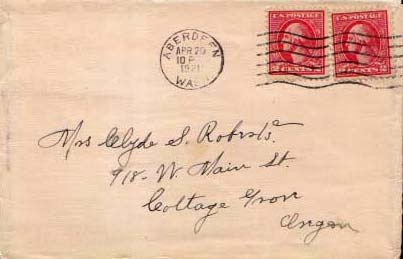 ABERDEEN
APR 20
10 P
1921
WASH.
U.S. POSTAGE U.S. POSTAGE
2 CENTS 2 CENTS
Mrs Clyde S. Roberts.
918 - W. Main St.
Cottage Grove
Oregon